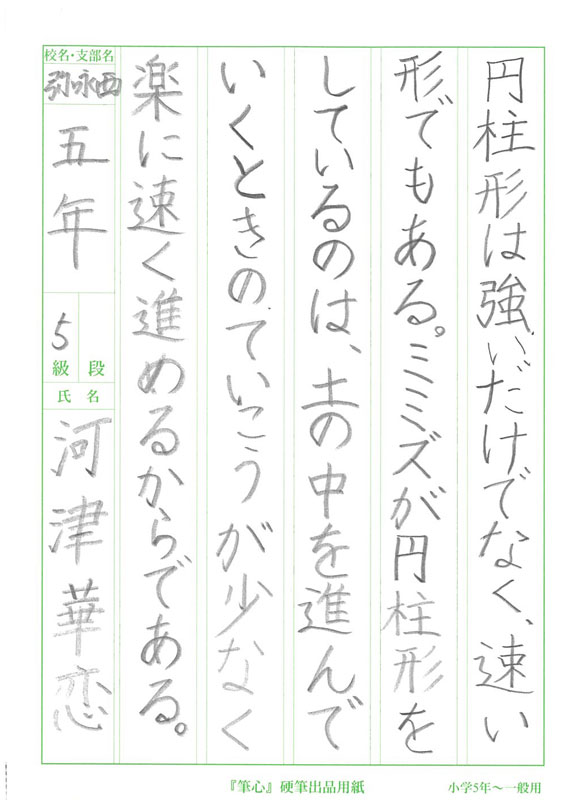 円柱形は強いだけでなく、速い
形でもある。ミミズが円柱形を
しているのは、土の中を進んで
いくときのていこうが少なく
楽に速く進めるからである。
校名・支部名
弥永西
五年
5
級段
氏名
河津華恋
『筆心』硬筆出品用紙
小学5年～一般用